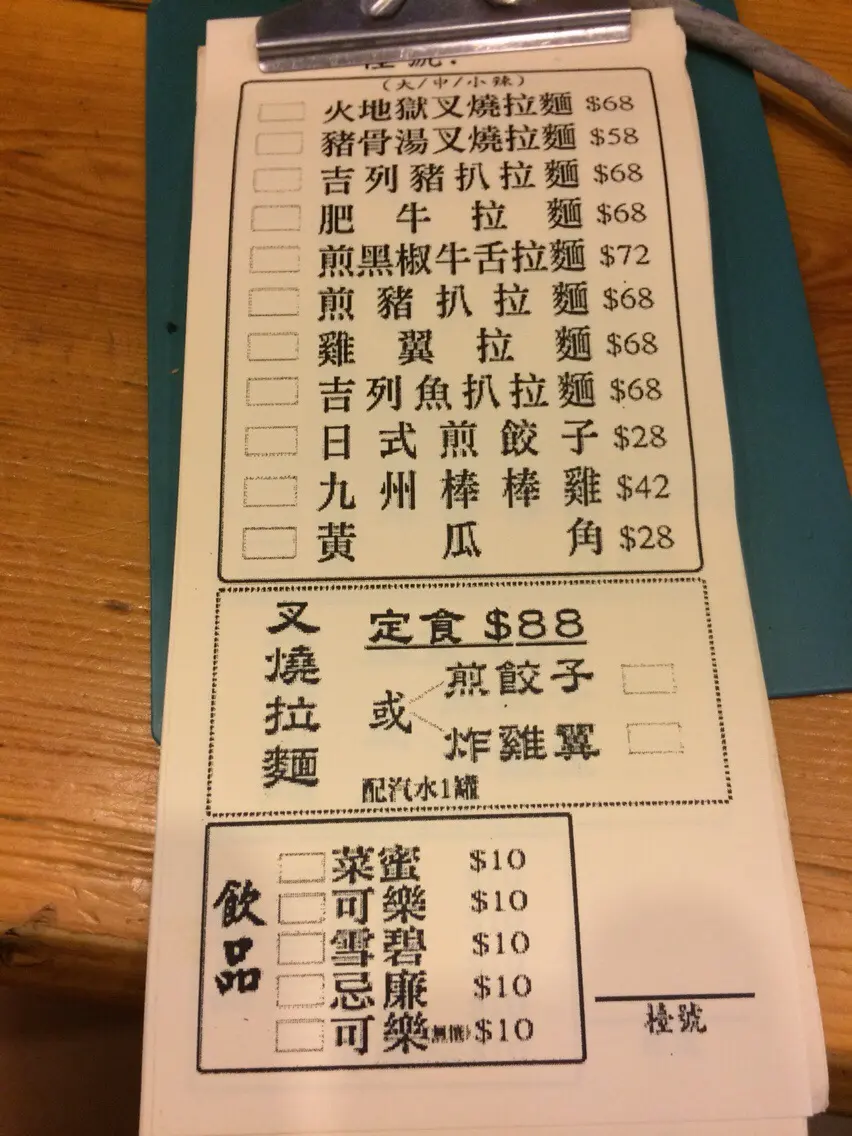 檯號:
(大/中/小辣)
火地獄叉燒拉麵 $68
豬骨湯叉燒拉麵 $58
吉列豬扒拉麵 $68
肥牛拉麵 $68
煎黑椒牛舌拉麵 $72
煎豬扒拉麵 $68
雞翼拉麵 $68
吉列魚扒拉麵 $68
日式煎餃子 $28
九州棒棒雞 $42
黃瓜角 $28
叉燒拉麵
定食 $88
或
煎餃子
炸雞翼
配汽水1罐
飲品
菜蜜 $10
可樂 $10
雪碧 $10
忌廉 $10
可樂(無糖) $10
檯號